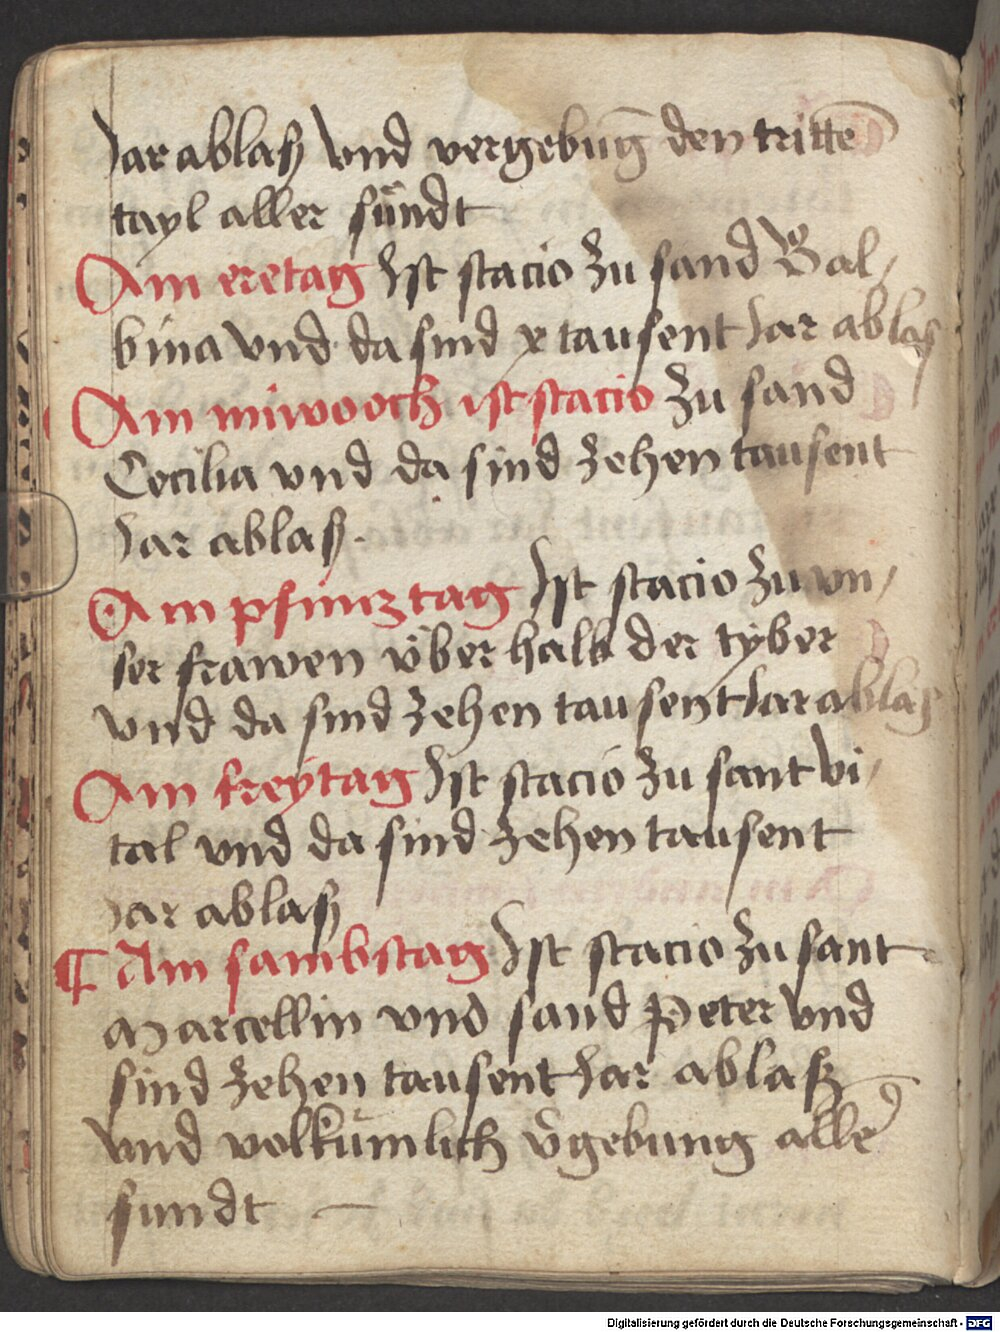 Jar ablaß vnd vergebug̅ den tritte̅
tayl aller sündt
Am eretag Ist stacio zu sand Bal/
bina vnd da sind x tausent Jar ablas
Am miwooch ist stacio zu sand
Cecilia vnd da sind zehen tausent
Jar ablaß.
Am pfincztag Ist stacio zu vn/
ser frawen über halb der tyber
vnd da sind zehen tausent Jar ablas
Am freytag Ist stacio zu sant vi/
tal vnd da sind zehen tausent
Jar ablaß
¶ Am sambstag Ist stacio zu sant
Marcellin vnd sand Peter vnd
sind zehen tausent Jar ablaß
vnd volkümlich v̄gebung alle͛
sundt —
Digitalisierung gefördert durch die Deutsche Forschungsgemeinschaft - DFG